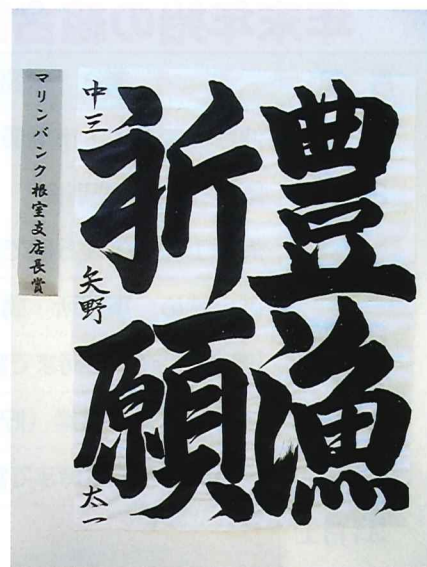 豊漁
祈願
中三 矢野 太一
マリンバンク根室支店長賞